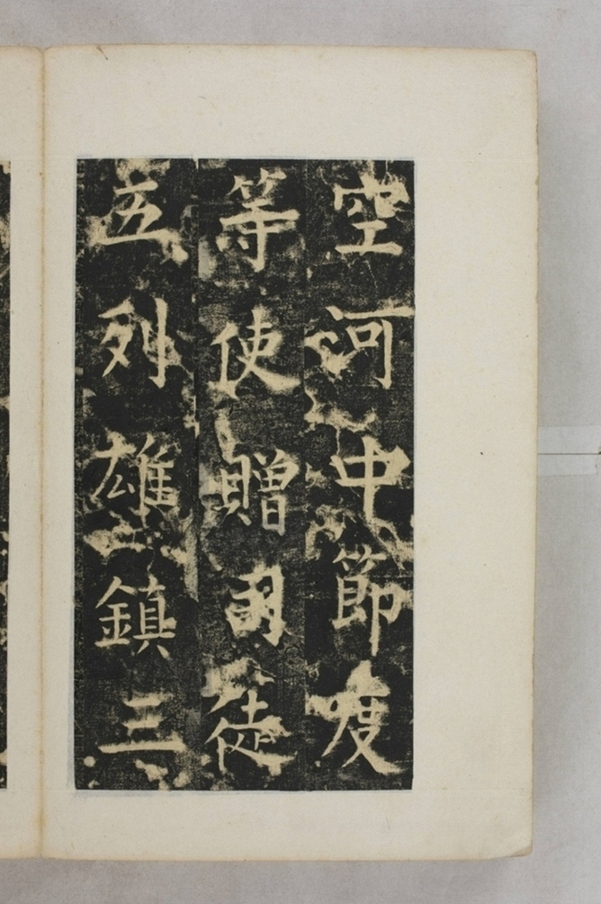 空河中節度
等使贈司徒
五列雄鎮三